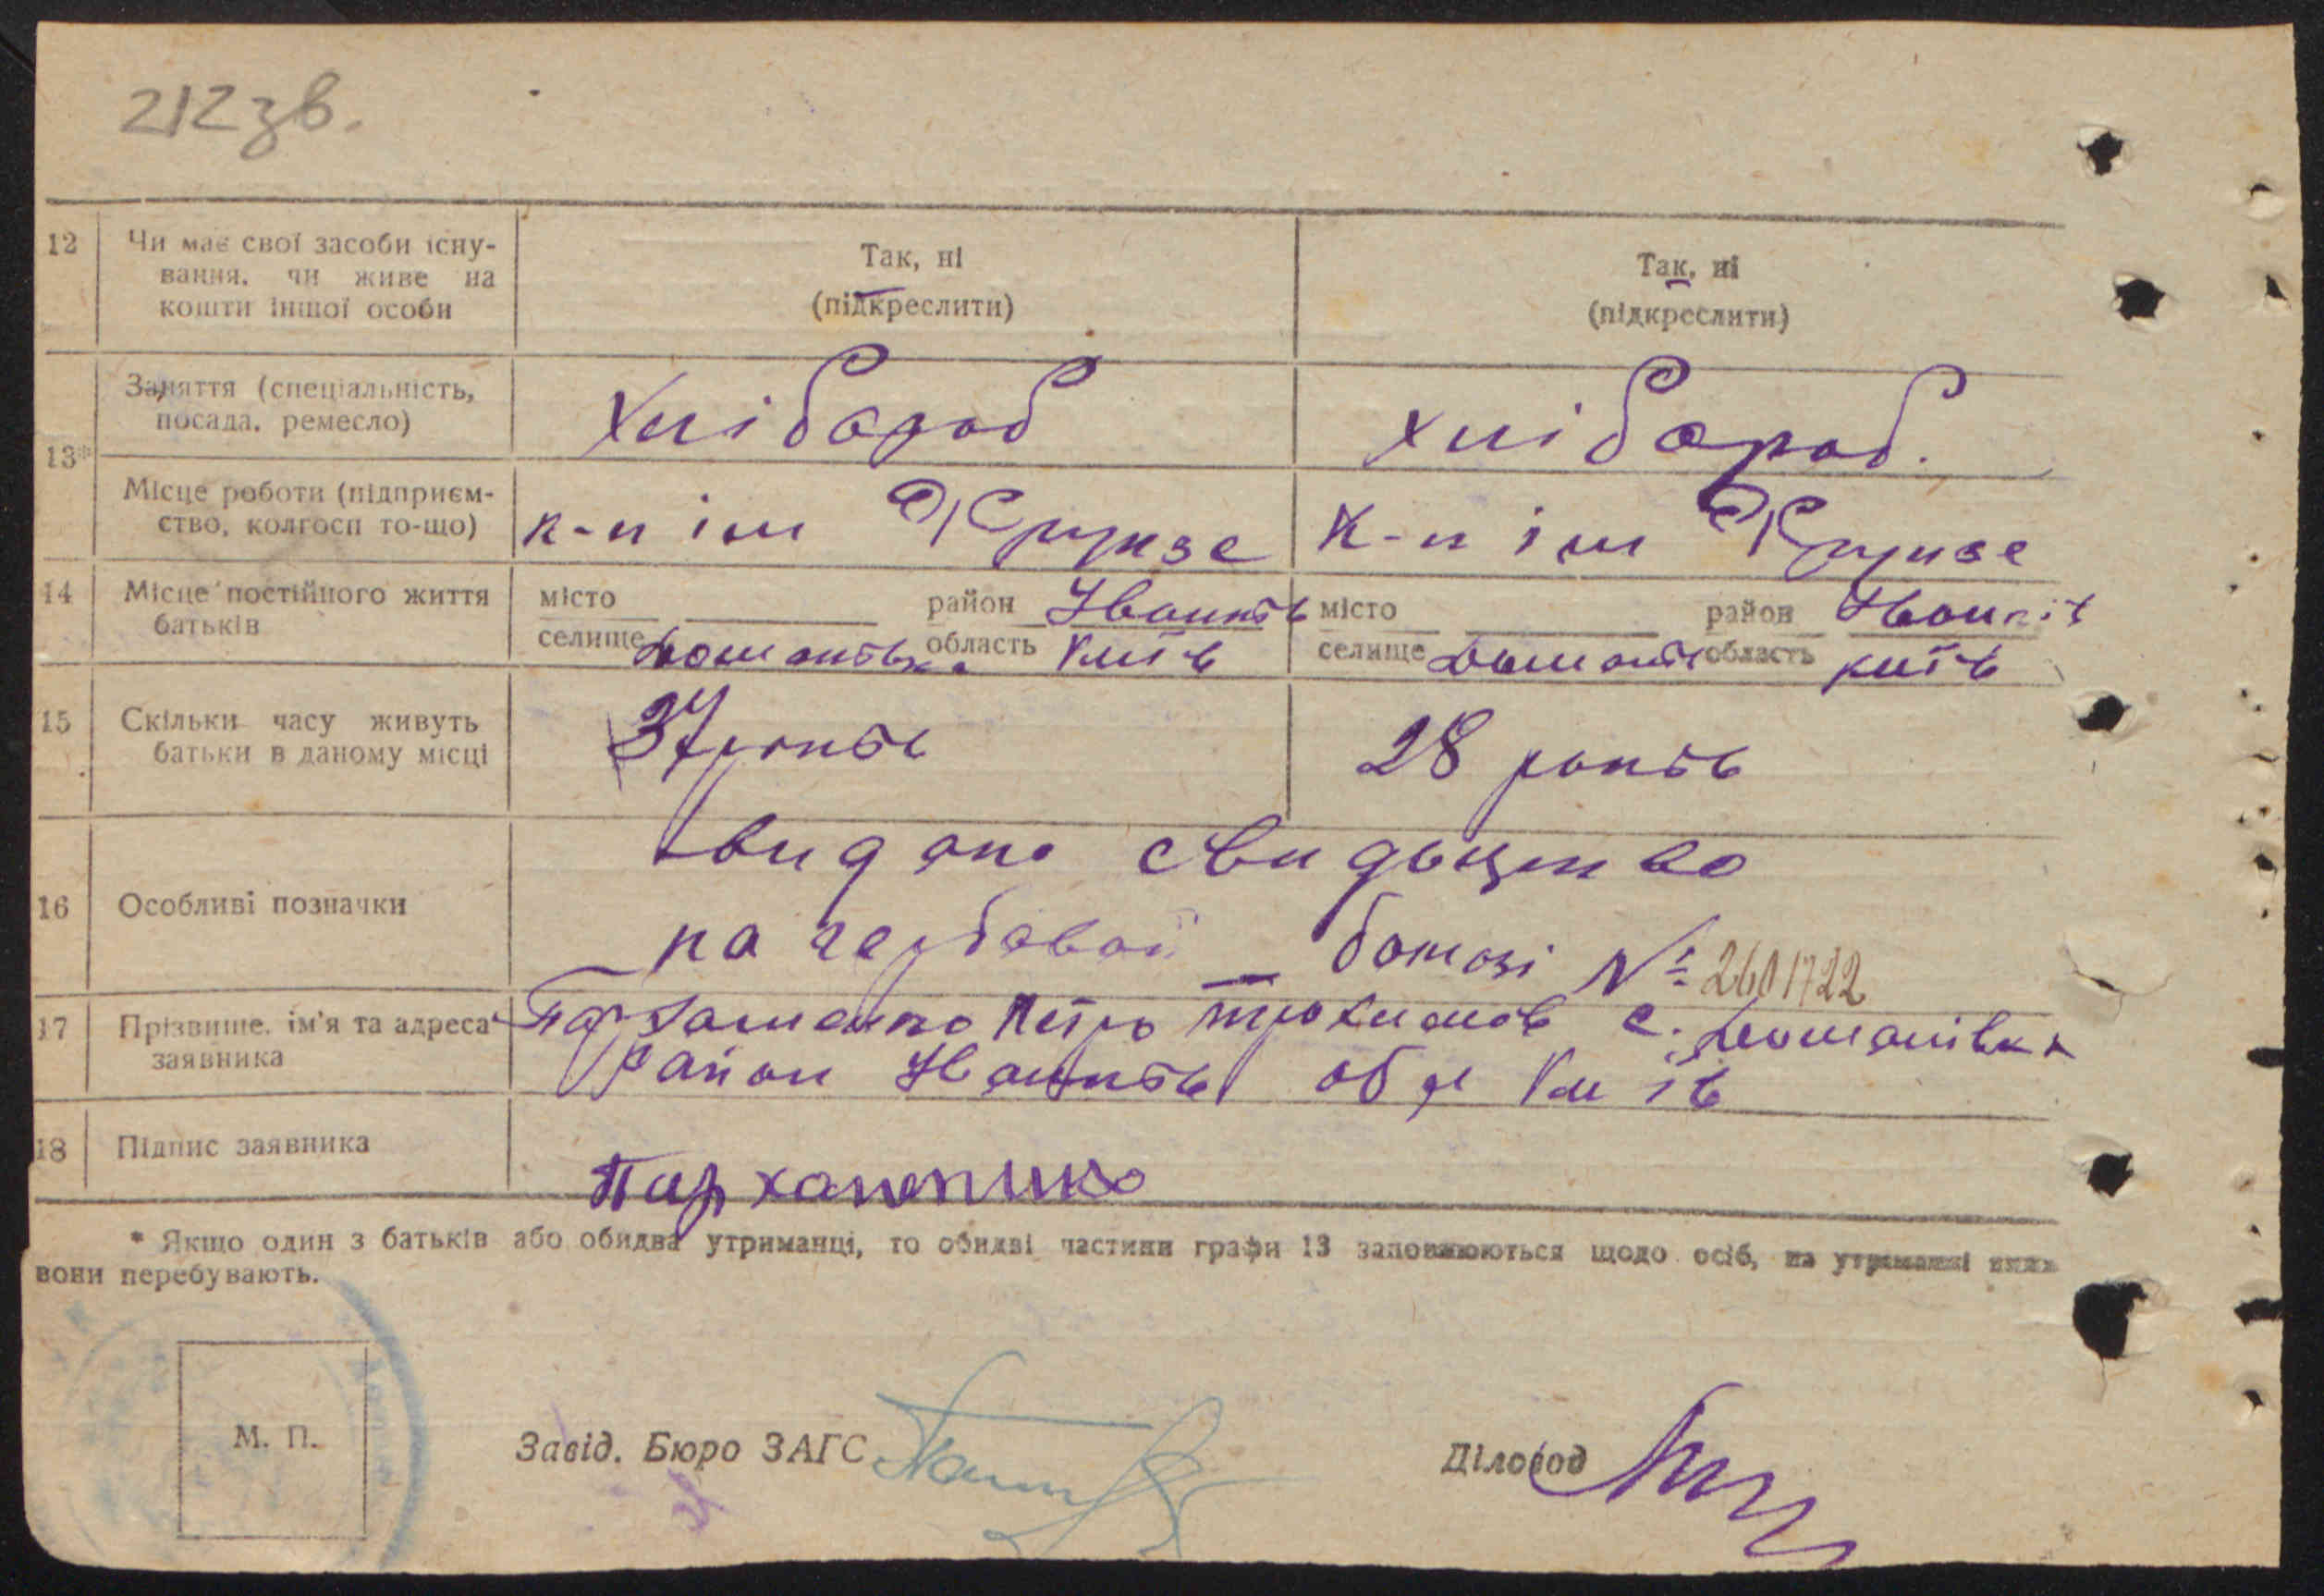 212 зв.
12 Чи має свої засоби існу-
вання, чи живе на
кошти іншої особи
Так, ні
(підкреслити)
Так, ні
(підкреслити)
13* Заняття (спеціальність,
посада, ремесло)
Хлібороб
хлібороб.
Місце роботи (підприєм-
ство, колгосп то-що)
к-п ім Фрунзе
К-п ім Фрунзе
14 Місце постійного життя
батьків
місто район Іванків
селище Доманівка область Київ
місто район Іванків
селище область київ
15 Скільки часу живуть
батьки в даному місці
37 років
28 років
16 Особливі позначки
видано свидоцтво
на гербовой бомозі № 2601722
17 Прізвище, ім'я та адреса
заявника
Пархоменко Петро с. Доманівка
район Іванків обл Київ
18 Підпис заявника
* Якщо один з батьків або обидва утриманці, то обидві частини графи 13 заповнюються щодо осіб, на утриманні яких
вони перебувають.
М. П.
Завід. Бюро ЗАГС
Діловод